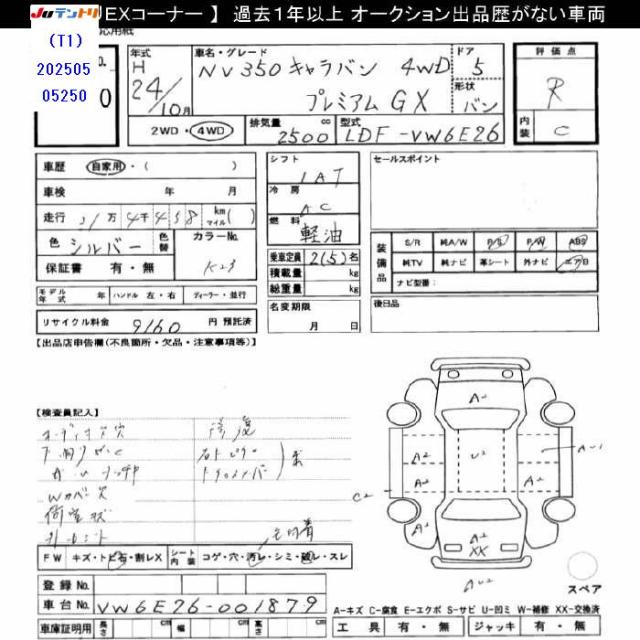 JUテントリ EXコーナー 】 過去1年以上 オークション出品歴がない車両
(T1)
202505
05250
年式
H
24/10月
車名・グレード
NV350 キャラバン 4WD
プレミアム GX
ドア
5
形状
バン
評価点
R
内装
C
2WD・4WD
排気量
2500 cc
型式
LDF-VW6E26
車歴 自家用・( )
車検 年 月
走行 万 千 km マイル ( )
色 シルバー 色替
カラーNo.
K23
保証書 有・無
モデル年式 年 ハンドル 左・右 ディーラー・並行
リサイクル料金 9160 円 預託済
シフト
IAT
冷房
AC
燃料
軽油
乗車定員 2(5)名
積載量 kg
総重量 kg
名変期限
月 日
セールスポイント
装備品
S/R 純A/W P/S P/W ABS
純TV 純ナビ 革シート 外ナビ エアB
ナビ型番:
後日品
【出品店申告欄(不良箇所・欠品・注意事項等)】
【検査員記入】
オーディオ欠
修復
Wカバー欠
FW キズ・トビ石・割レX シート内装 コゲ・穴・汚レ・シミ・破レ・スレ
登録No.
車台No. VW6E26-001879
車庫証明用 長さ cm 幅 cm 高さ cm
A-キズ C-腐食 E-エクボ S-サビ U-凹ミ W-補修 XX-交換済
工具 有・無 ジャッキ 有・無
スペア